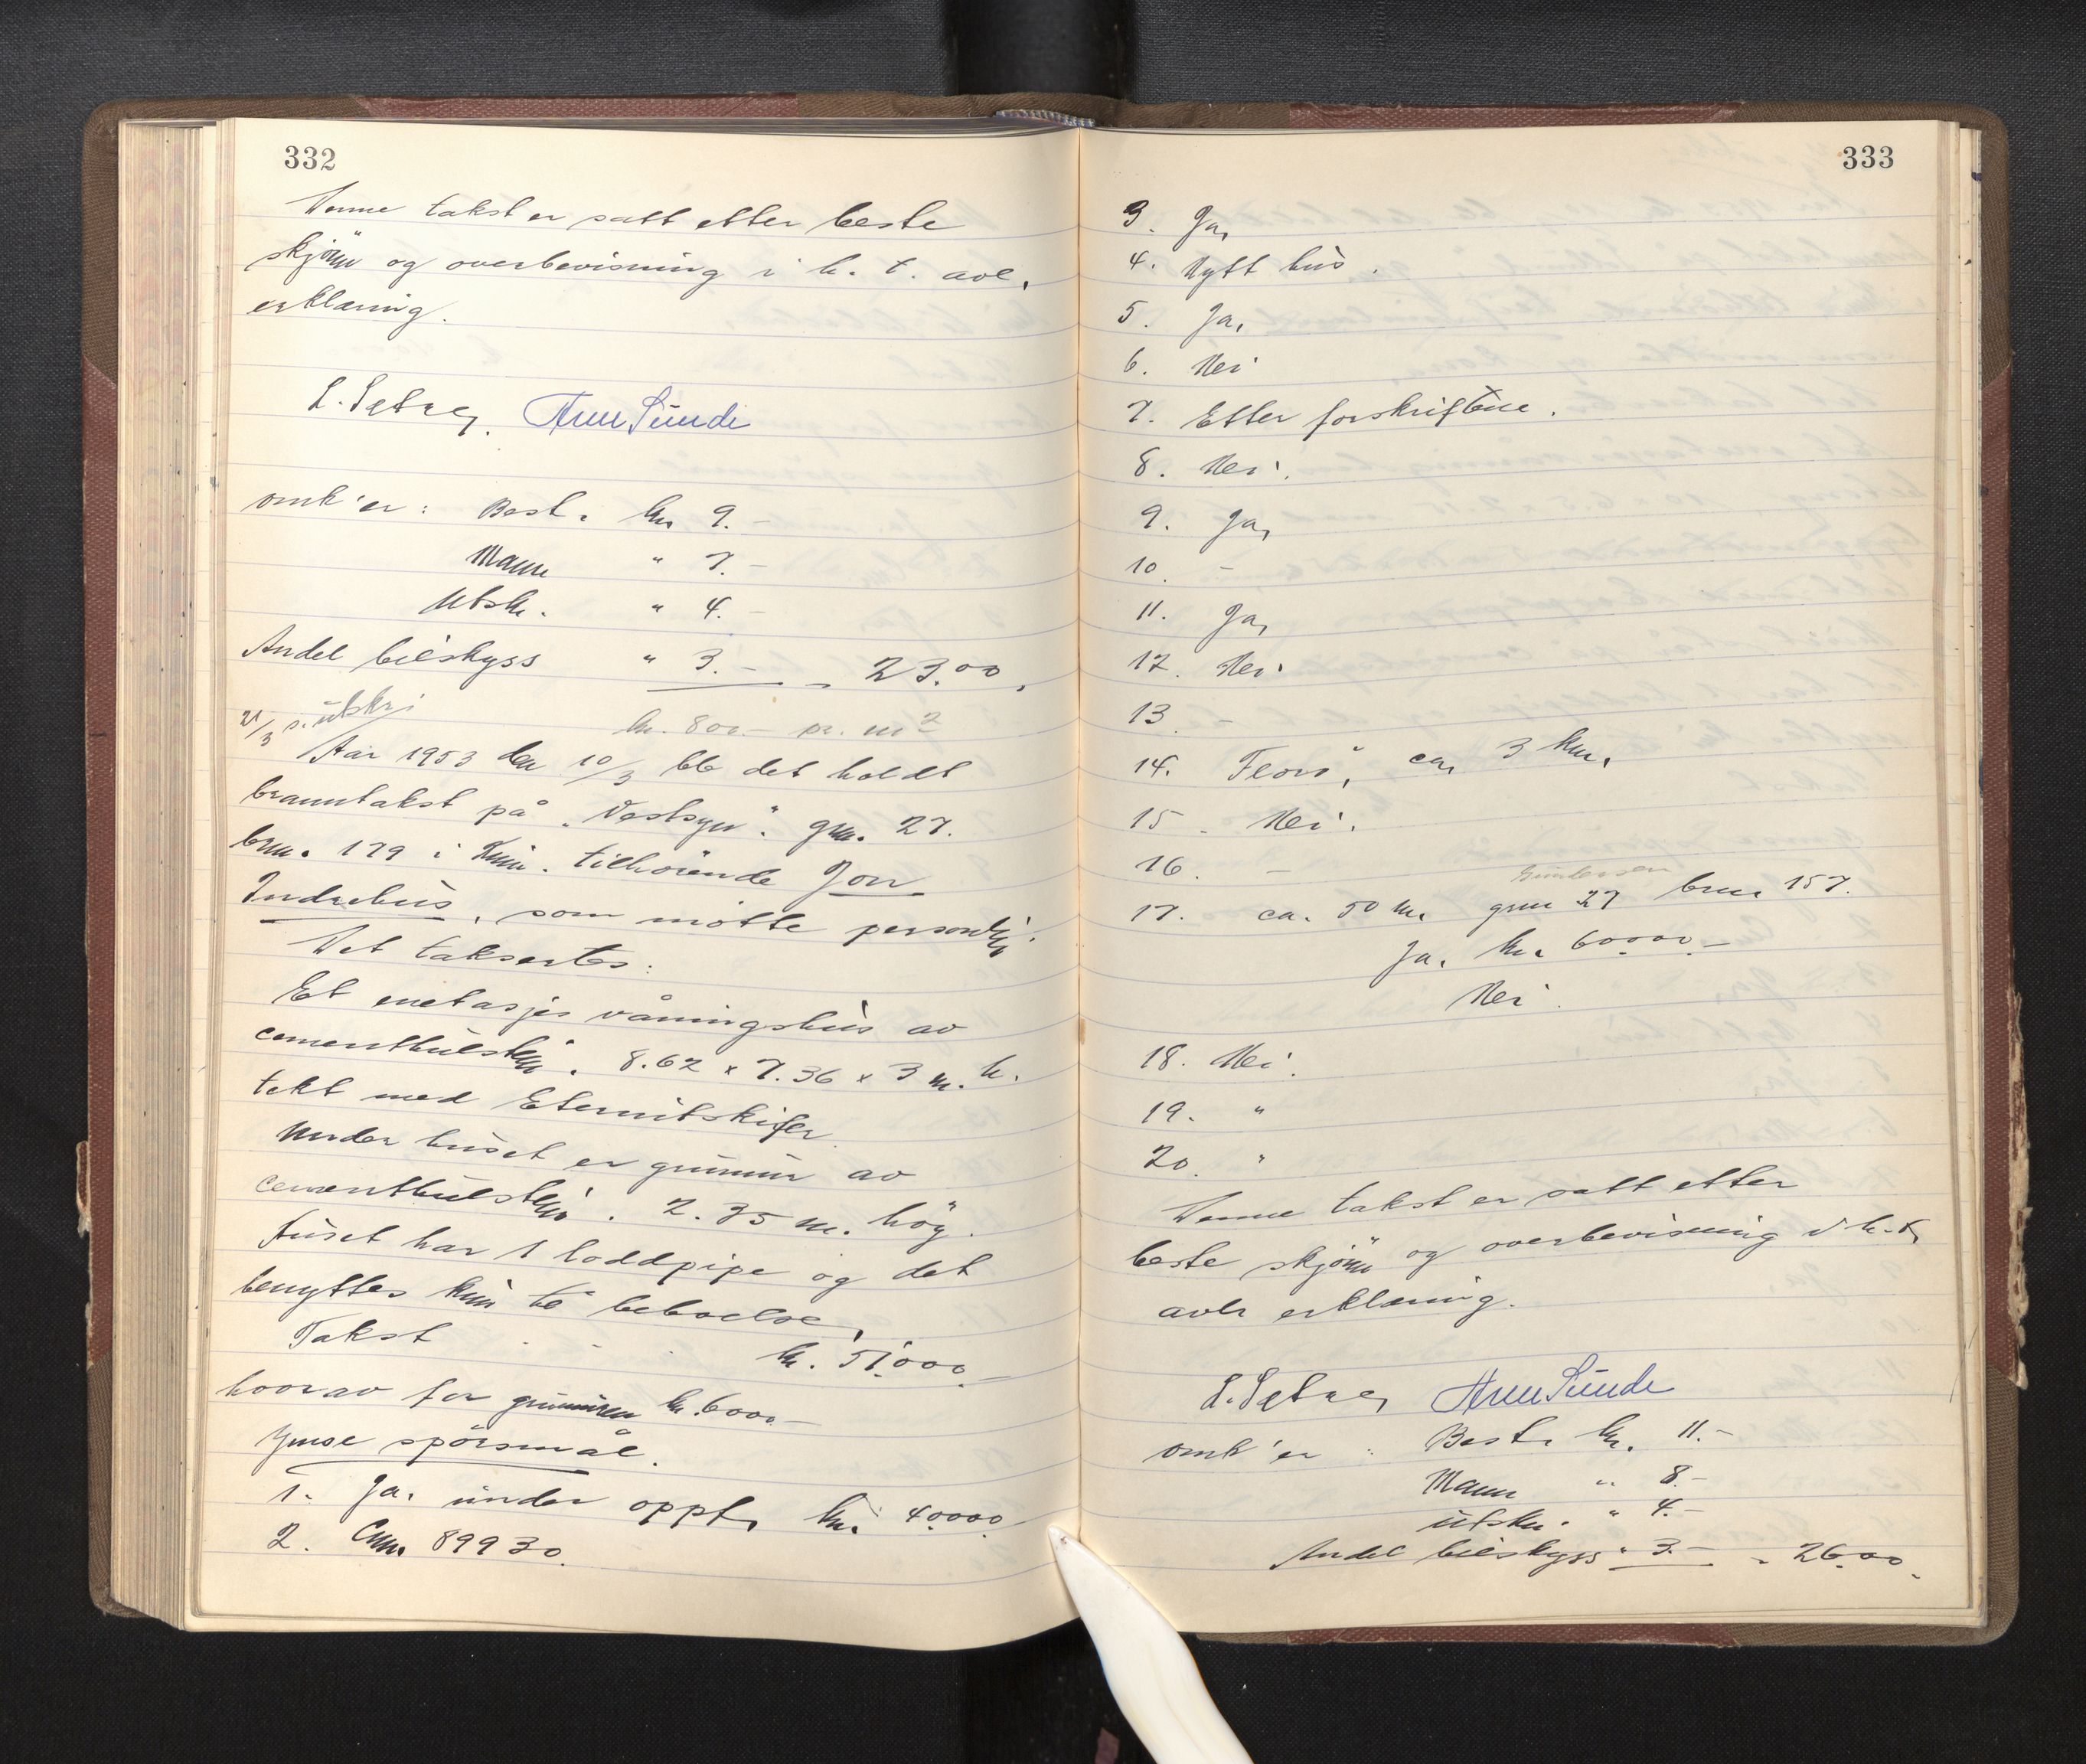 332
Denne takst er satt etter beste
skjönn og overbevisning i h. t. avl.
erklæring.
L. Sætre, Arne Sunde
omk'er: Best. kr. 9.-
Mann " 7.-
Utskr. " 4.-
Andel bilskyss " 3.- - 23.00.
21/3 s. utskr.
kr. 800.- pr. m2
Aar 1953 den 10/3 ble det holdt
branntakst på "Vestsyn". gnr. 27.
brnr. 179 i Kinn. tilhörende Jon
Indrehus, som mötte personlig.
Det taksertes:
Et enetasjes våningshus av
cementhulstein. 8.62 x 7.36 x 3 m. h.
tekt med Eternitskifer.
Under huset er grunnmur av
cementhulstein. 2.35 m. höy.
Huset har 1 loddpipe og det
benyttes kun til beboelse.
Takst - - - kr. 51.000.-
hvorav for grunnmuren kr. 6000.-
Ymse spörsmål.
1. Ja. under oppf. kr. 40.000.-
2. Cnr. 89930.
333
3. Ja,
4. Nytt hus.
5. Ja,
6. Nei
7. Etter forskriftene.
8. Nei.
9. Ja,
10. -
11. Ja,
12. Nei.
13 -
14. Florö, ca. 3 km.
15. Nei.
16. -
Gundersen
17. ca. 50 m. gnr 27 brnr 157.
Ja. kr. 60.000.-
Nei.
18. Nei.
19. "
20. "
Denne takst er satt etter
beste skjönn og overbevisning i h. t.
avla erklæring.
L. Sætre, Arne Sunde
omk'er: Best. kr. 11.-
Mann " 8.-
utskr. " 4.-
Andel bilskyss " 3.- - 26.00.